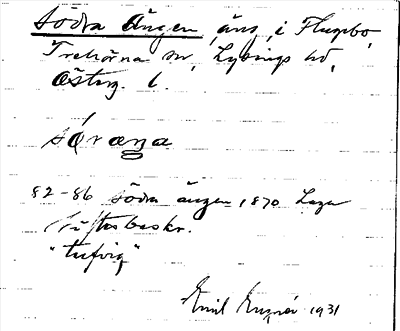 Södra Ängen, äng, i Flugebo,
Trehörna sn, Lysings hd,
Österg. l.
82-86 Södra ängen 1870 Laga
skiftesbeskr.
"tufvig"
Emil 1931